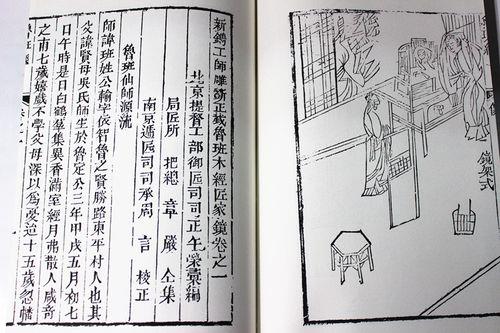 鏡架式
新鐫工師雕斵正式魯班木經匠家鏡卷之一
北京提督工部御匠司司正午榮彙編
局匠所把總章嚴仝集
南京遞匠司司承周言校正
魯班仙師源流
師諱班姓公輸字依智魯之賢勝路東平村人也其
父諱賢母吳氏師生於魯定公三年甲戌五月初七
日午時是日白鶴羣集異香滿室經月弗散人咸奇
之甫七歲嬉戲不學父母深以爲憂迨十五歲忽幡